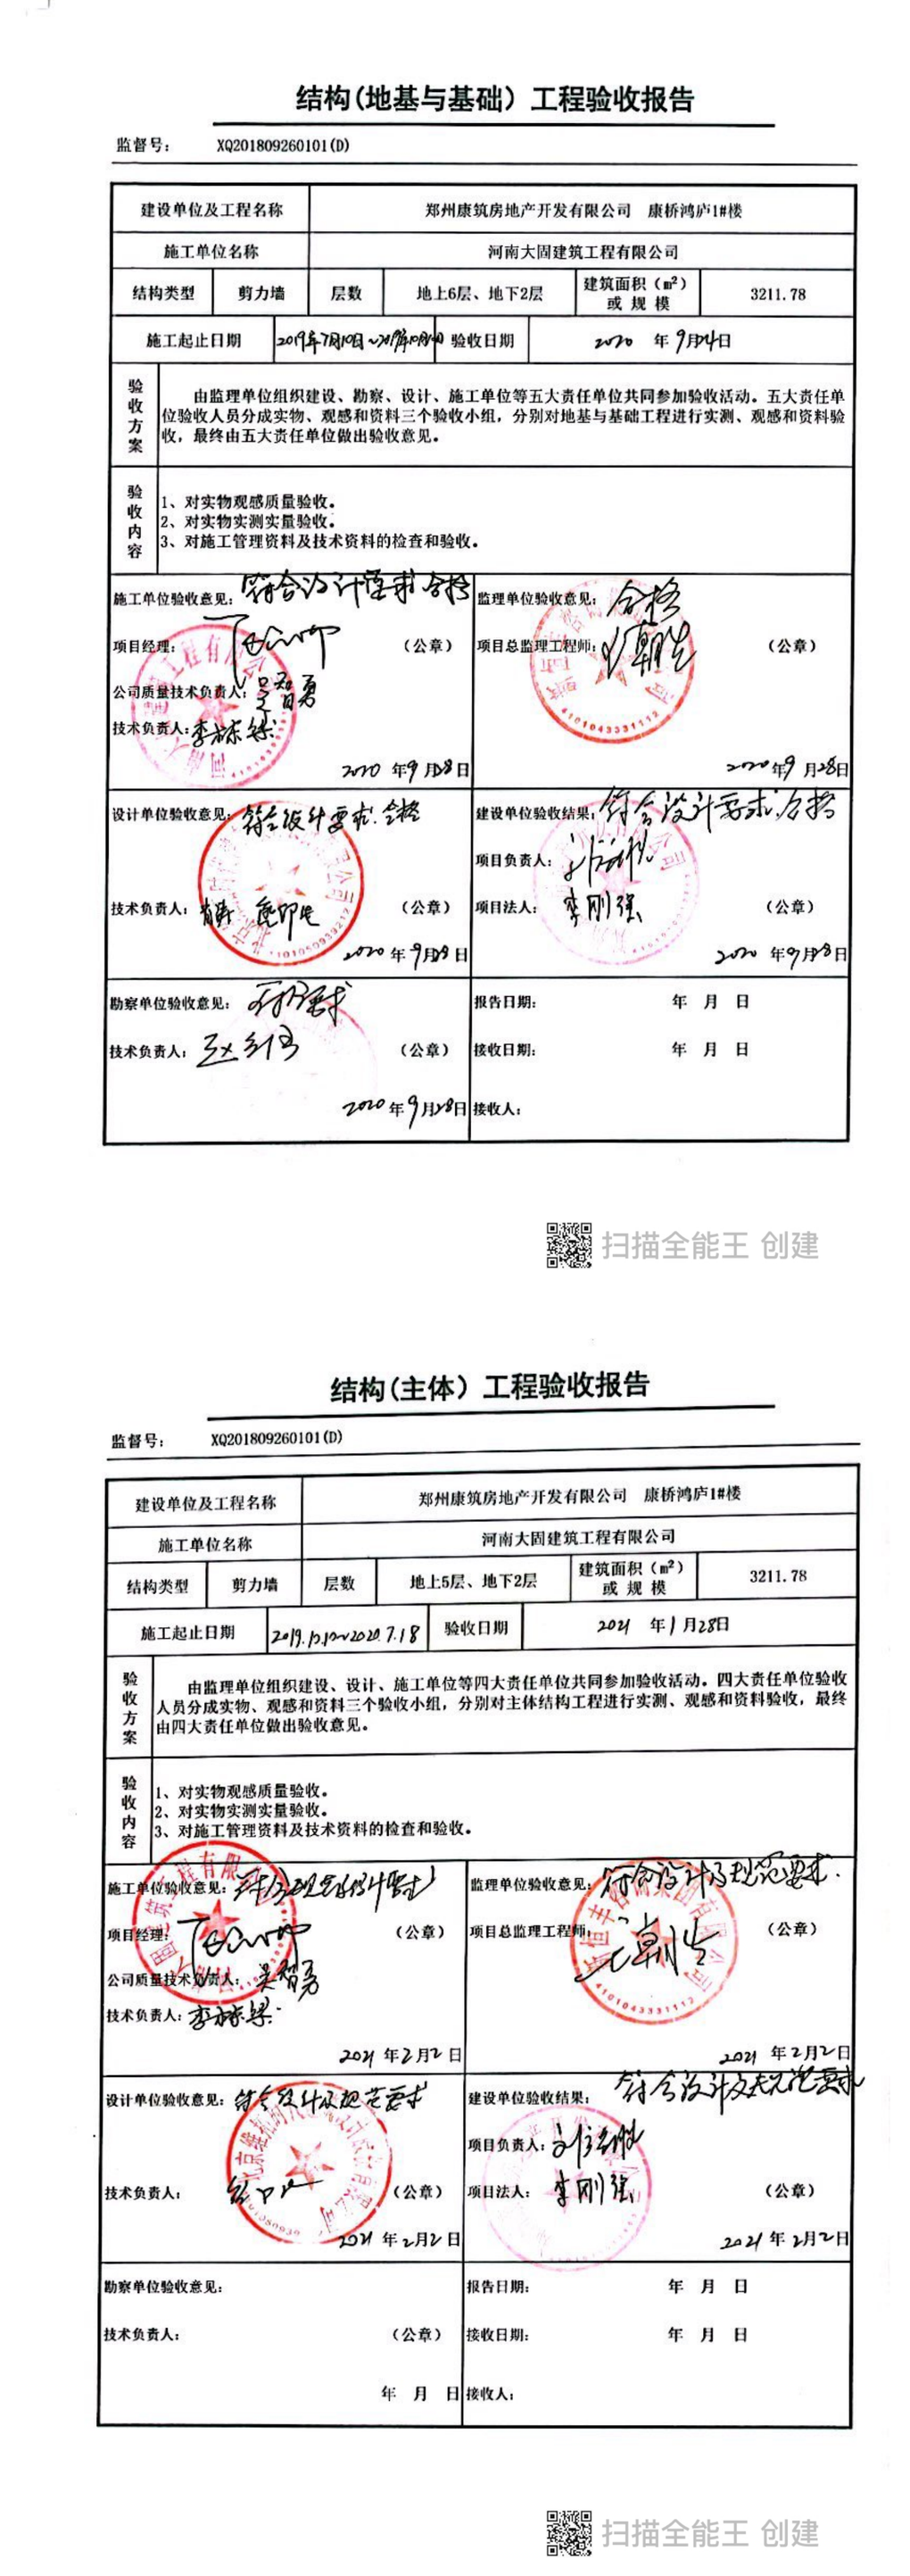 结构(地基与基础)工程验收报告
监督号: XQ201809260101(D)
建设单位及工程名称 郑州康筑房地产开发有限公司 康桥鸿庐1#楼
施工单位名称 河南大固建筑工程有限公司
结构类型 剪力墙 层数 地上6层、地下2层 建筑面积(㎡)或规模 3211.78
施工起止日期 验收日期 2020 年9月24日
验收方案
由监理单位组织建设、勘察、设计、施工单位等五大责任单位共同参加验收活动。五大责任单
位验收人员分成实物、观感和资料三个验收小组,分别对地基与基础工程进行实测、观感和资料验
收,最终由五大责任单位做出验收意见。
验收内容
1、对实物观感质量验收。
2、对实物实测实量验收。
3、对施工管理资料及技术资料的检查和验收。
施工单位验收意见: 符合设计要求 合格
项目经理: (公章)
公司质量技术负责人: 吴智勇
技术负责人: 李栋梁
2020 年9月28日
监理单位验收意见: 合格
项目总监理工程师: (公章)
4101043331112
2020年9月28日
设计单位验收意见: 符合设计要求.合格
技术负责人: (公章)
1101050939212
2020 年9月28日
建设单位验收结果: 符合设计要求.合格
项目负责人:
项目法人: 李刚强 (公章)
2020 年9月28日
勘察单位验收意见: 符合要求
技术负责人: (公章)
2020年9月28日
报告日期: 年 月 日
接收日期: 年 月 日
接收人:
扫描全能王 创建
结构(主体)工程验收报告
监督号: XQ201809260101(D)
建设单位及工程名称 郑州康筑房地产开发有限公司 康桥鸿庐1#楼
施工单位名称 河南大固建筑工程有限公司
结构类型 剪力墙 层数 地上5层、地下2层 建筑面积(㎡)或规模 3211.78
施工起止日期 验收日期 2021 年1月28日
验收方案
由监理单位组织建设、设计、施工单位等四大责任单位共同参加验收活动。四大责任单位验收
人员分成实物、观感和资料三个验收小组,分别对主体结构工程进行实测、观感和资料验收,最终
由四大责任单位做出验收意见。
验收内容
1、对实物观感质量验收。
2、对实物实测实量验收。
3、对施工管理资料及技术资料的检查和验收。
施工单位验收意见: 符合规范及设计要求
项目经理: (公章)
公司质量技术负责人: 吴智勇
技术负责人: 李栋梁
2021 年2月2日
监理单位验收意见: 符合设计及规范要求.
项目总监理工程师: (公章)
4101043331112
2021 年2月2日
设计单位验收意见: 符合设计及规范要求
技术负责人: (公章)
2021 年2月2日
建设单位验收结果: 符合设计及规范要求
项目负责人:
项目法人: 李刚强 (公章)
2021 年2月2日
勘察单位验收意见:
技术负责人: (公章)
年 月 日
报告日期: 年 月 日
接收日期: 年 月 日
接收人:
扫描全能王 创建